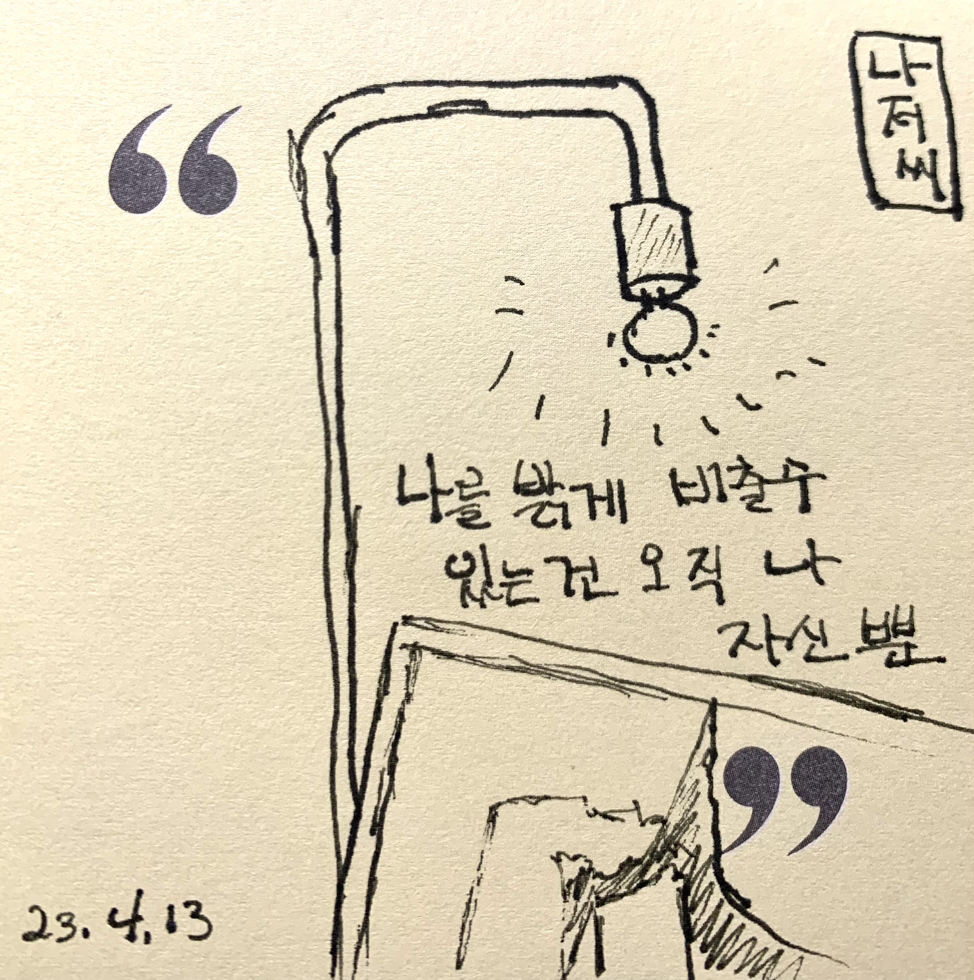 “
나
저
씨
나를 밝게 비출수
있는건 오직 나
자신 뿐
”
23.4.13